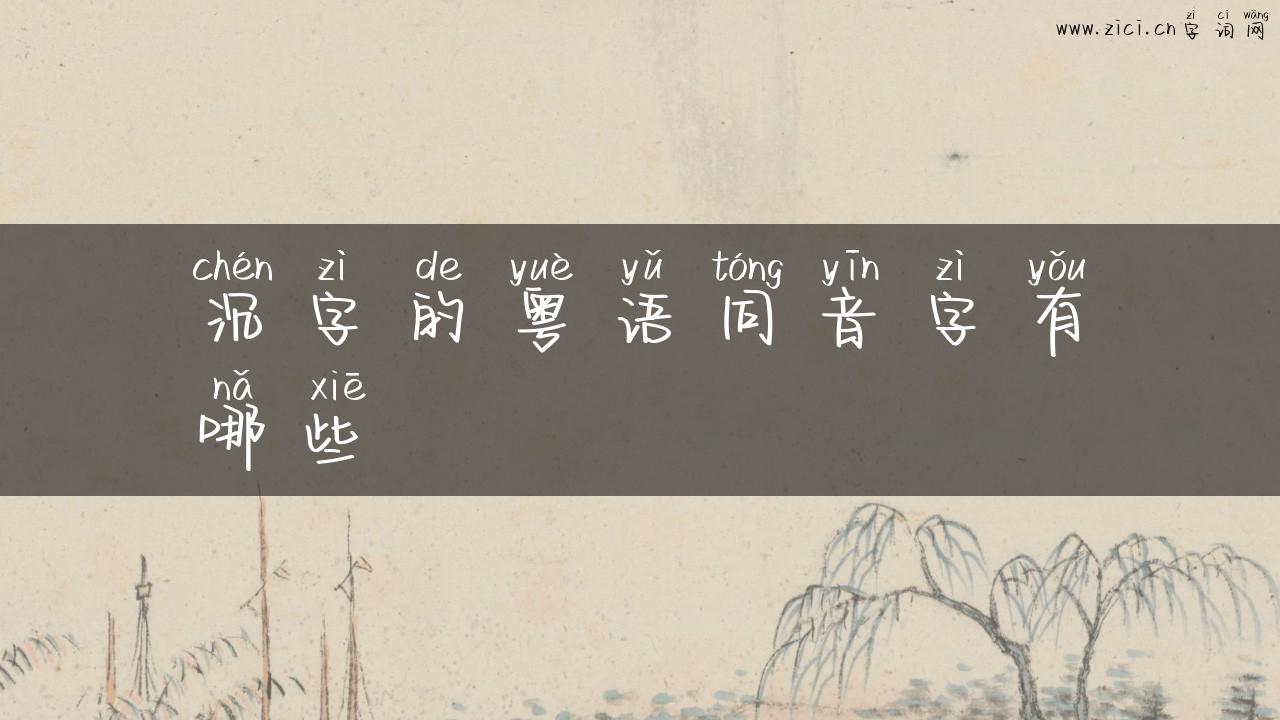 zì cí wǎng
www.zici.cn 字 词 网
chén zì de yuè yǔ tóng yīn zì yǒu
沉 字 的 粤 语 同 音 字 有
nǎ xiē
哪 些